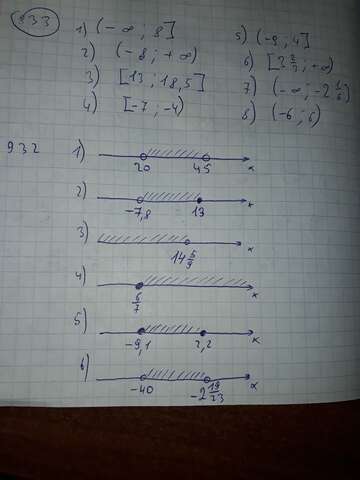 933
1) (-∞; 8]
2) (-8; +∞)
3) [13; 18,5]
4) [-7; -4)
5) (-9; 4]
6) [2 2/3; +∞)
7) (-∞; -2 1/6]
8) (-6; 6)
932
1)
20 45 x
2)
-7,8 13 x
3)
14 5/9 x
4)
6/7 x
5)
-9,1 2,2 x
6)
-40 -2 19/23 x